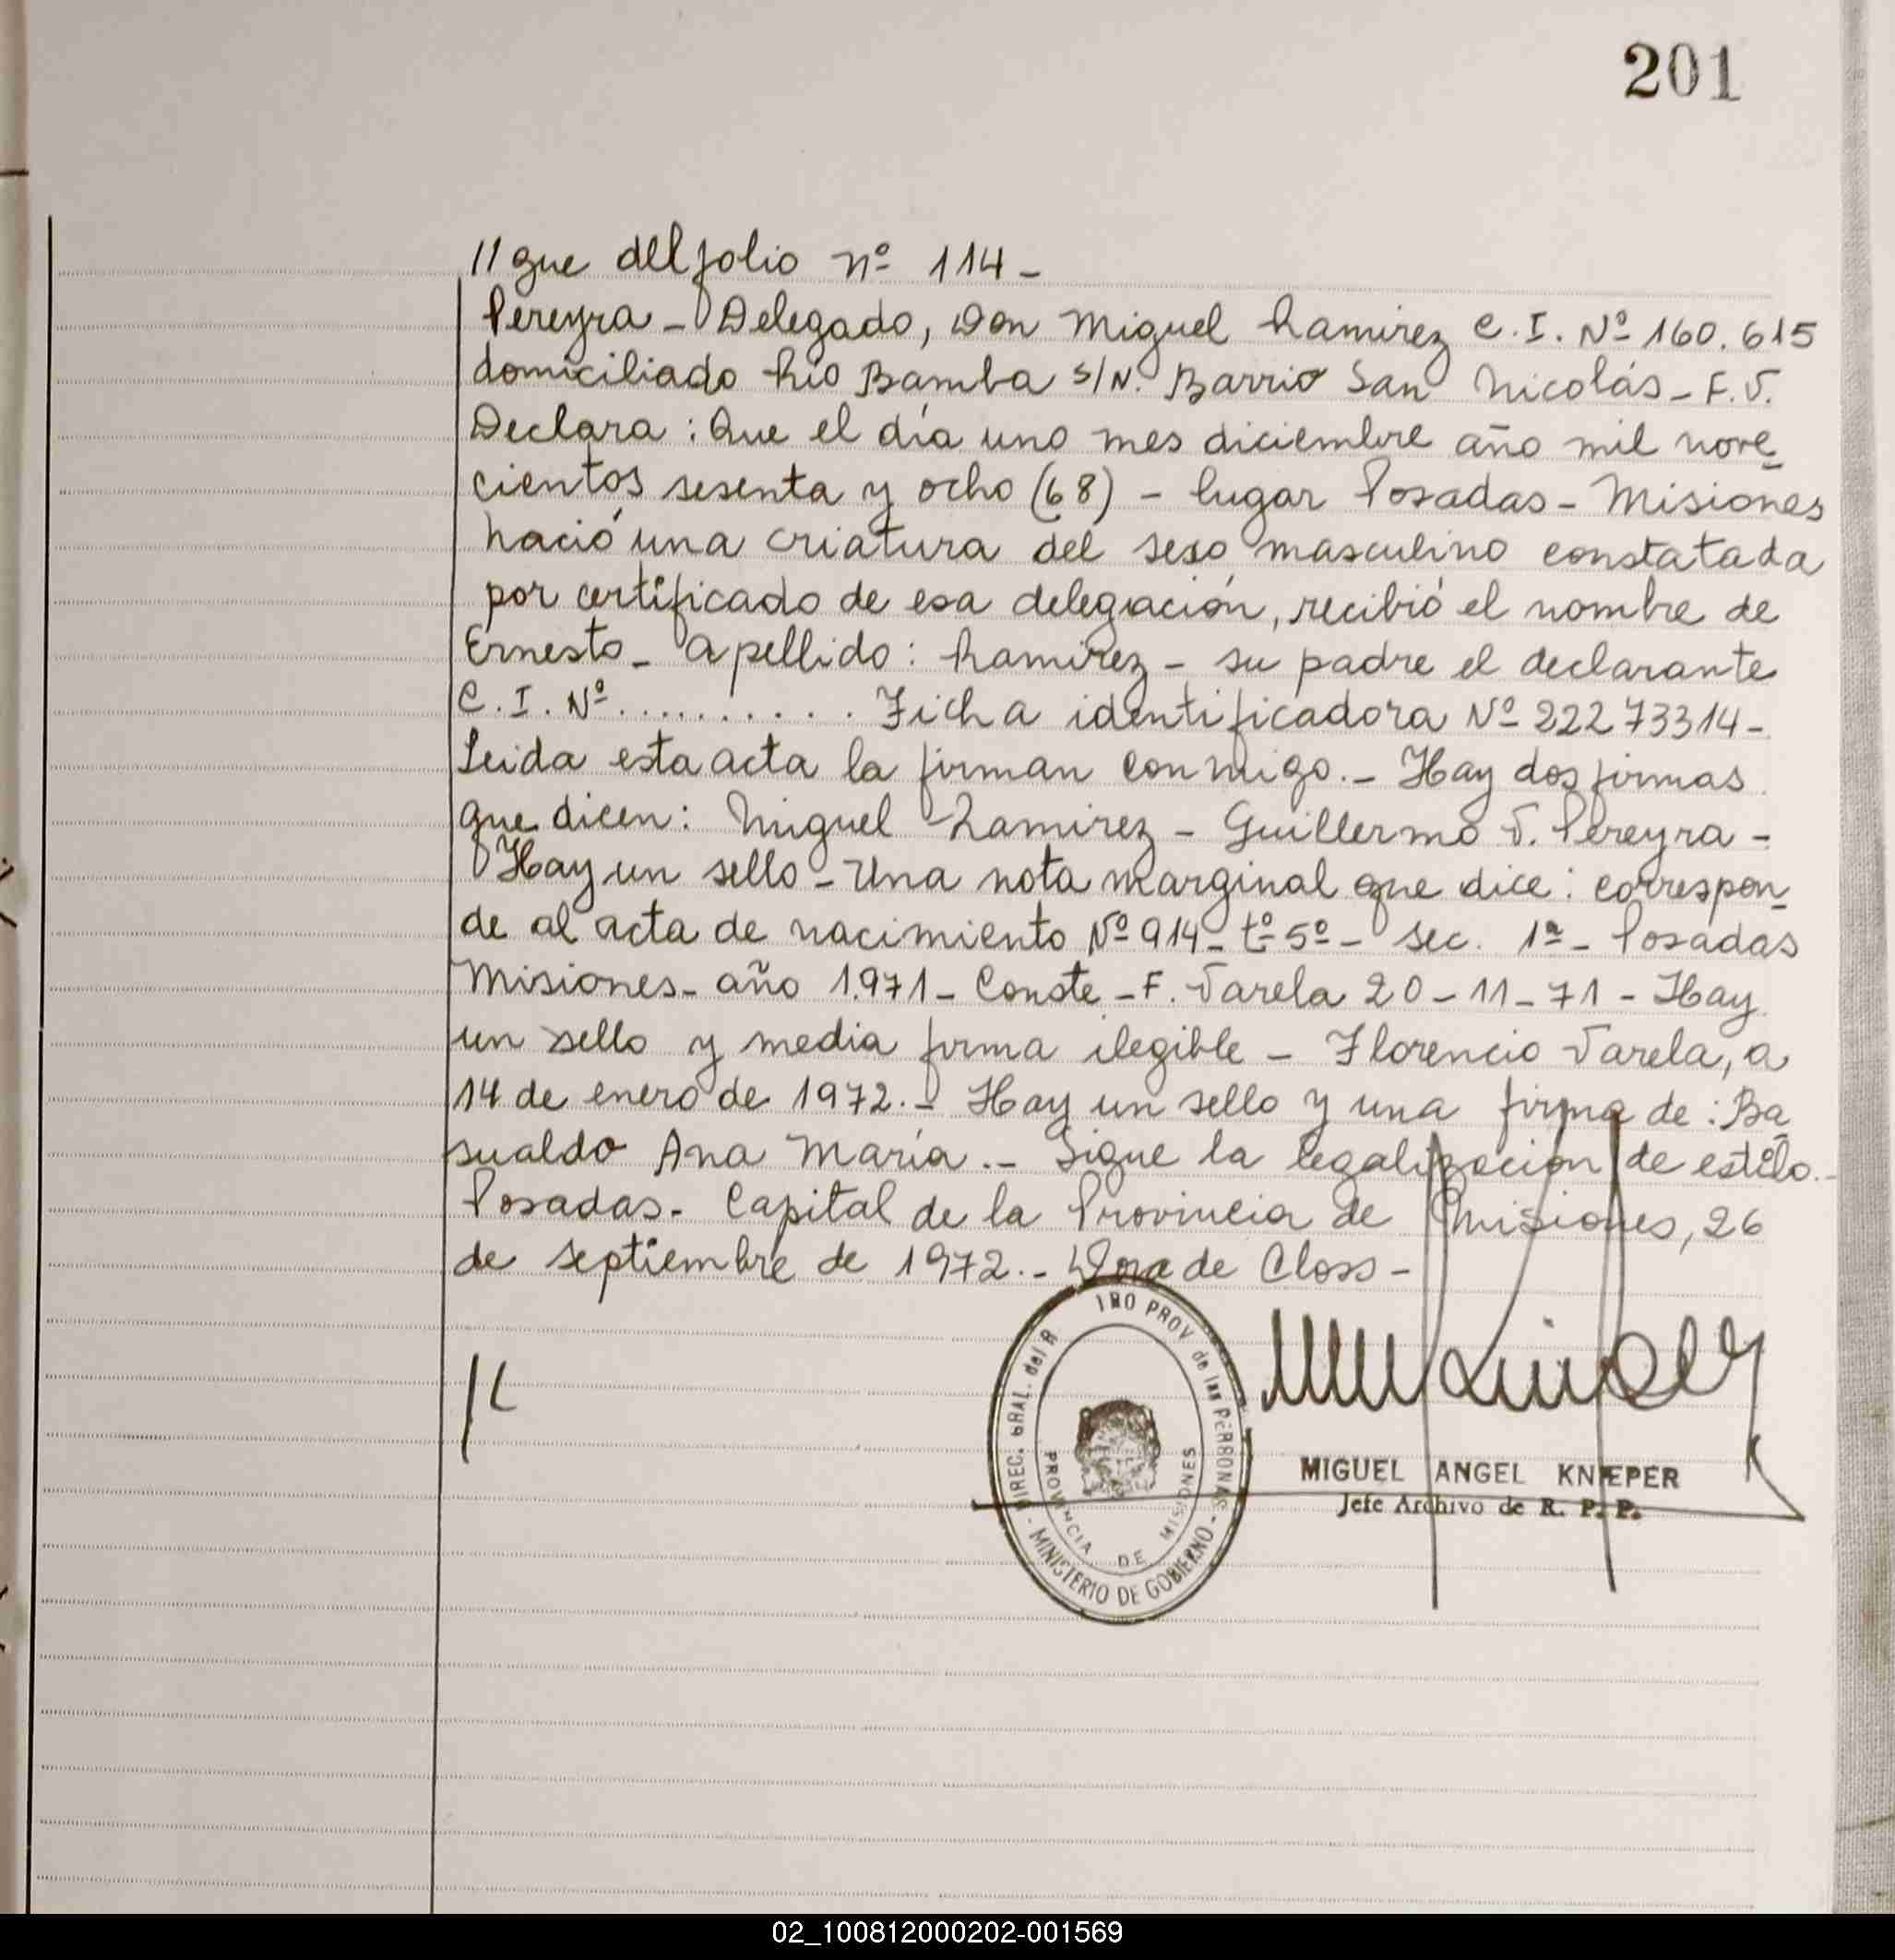 201
//gue del folio nº 114-
Pereyra - Delegado, Don Miguel Ramirez C.I. Nº 160.615
domiciliado Río Bamba S/N. Barrio San Nicolás - F.V.
Declara: Que el día uno mes diciembre año mil nove-
cientos sesenta y ocho (68) - lugar Posadas - Misiones
nació una criatura del sexo masculino constatada
por certificado de esa delegación, recibió el nombre de
Ernesto - apellido: Ramírez - su padre el declarante
C.I. Nº.......... Ficha identificadora Nº 22273314-
Leida esta acta la firman conmigo.- Hay dos firmas
que dicen: Miguel Ramirez - Guillermo V. Pereyra -
Hay un sello - Una nota marginal que dice: correspon-
de al acta de nacimiento Nº 914 - tº 5º - sec. 1ª - Posadas
Misiones - año 1.971 - Conste - F. Varela 20-11-71 - Hay
un sello y media firma ilegible - Florencio Varela, a
14 de enero de 1972.- Hay un sello y una firma de: Ba-
sualdo Ana María.- Sigue la legalización de estilo.-
Posadas. Capital de la Provincia de Misiones, 26
de septiembre de 1972.- Dora de Closs -
//
DIREC. GRAL. del R TRO PROV de las PERSONAS
PROVINCIA DE MISIONES
- MINISTERIO DE GOBIERNO -
MIGUEL ANGEL KNIEPER
Jefe Archivo de R. P. P.
02_100812000202-001569